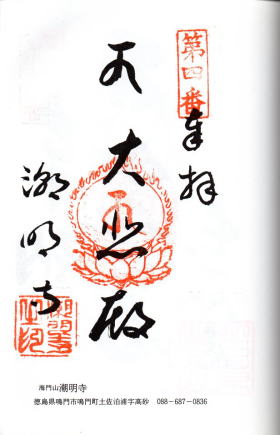 第四番
奉拝
大悲殿
潮明寺
海門山潮明寺
徳島県鳴門市鳴門町土佐泊浦字高砂 088-687-0836